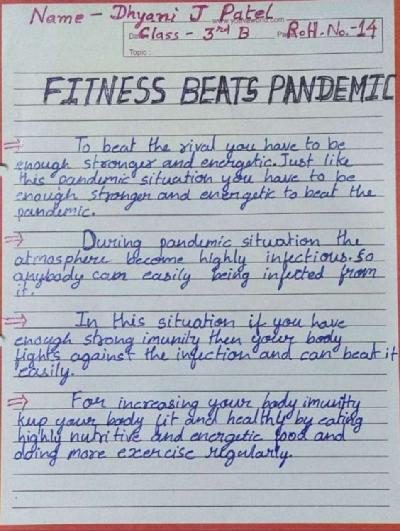 Name - Dhyani J Patel
www.youvaworld.com
Class - 3rd B
Roll.No.-14
Topic :
FITNESS BEATS PANDEMIC
⇒ To beat the rival you have to be
enough stronger and energetic. Just like
this pandemic situation you have to be
enough stronger and energetic to beat the
pandemic.
⇒ During pandemic situation the
atmosphere become highly infectious. So
anybody can easily being infected from
it.
⇒ In this situation if you have
enough strong imunity then your body
fights against the infection and can beat it
easily.
⇒ For increasing your body imunity
keep your body fit and healthy by eating
highly nutritive and energetic food and
doing more exercise regularly.